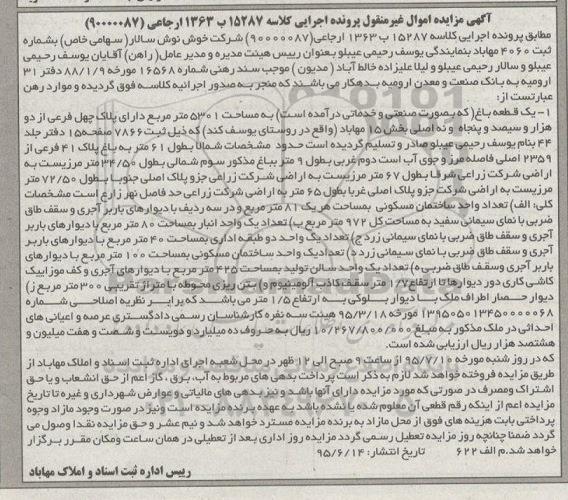 آگهی مزایده اموال غیرمنقول پرونده اجرایی کلاسه ۱۵۲۸۷ ب ۱۳۶۳ ارجاعی (۹۰۰۰۰۰۸۷)
مطابق پرونده اجرایی کلاسه ۱۵۲۸۷ ب ۱۳۶۳ ارجاعی(۹۰۰۰۰۰۸۷) شرکت خوش نوش سالار( سهامی خاص) بشماره
ثبت ۴۰۶۰ مهاباد بنمایندگی یوسف رحیمی عیبلو بعنوان رییس هیئت مدیره و مدیر عامل( راهن) آقایان یوسف رحیمی
عیبلو و سالار رحیمی عیبلو و لیلا علیزاده خالط آباد ( مدیون ) موجب سند رهنی شماره ۱۶۵۶۸ مورخه ۸۸/۱/۹ دفتر ۳۱
ارومیه به بانک صنعت و معدن ارومیه بدهکار می باشند که منجر به صدور اجرائیه کلاسه فوق گردیده و موارد رهن
عبارتست از:
۱- یک قطعه باغ( که بصورت صنعتی و خدماتی درآمده است) به مساحت ۵۳۰۱ متر مربع دارای پلاک چهل فرعی از دو
هزار و سیصد و پنجاه و نه اصلی بخش ۱۵ مهاباد (واقع در روستای یوسف کند) که ذیل ثبت ۷۸۶۶ صفحه ۱۵ دفتر جلد
۴۴ بنام یوسف رحیمی عیبلو صادر و تسلیم گردیده است حدود مشخصات شمالا بطول ۶۱ متر به باغ پلاک ۴۱ فرعی از
۲۳۵۹ اصلی فاصله مرز و جوی آب است دوم غربی بطول ۹ متر بباغ مذکور سوم شمالی بطول ۳۴/۵۰ متر مرزیست به
اراضی شرکت زراعی شرقا بطول ۶۷ متر مرزیست به اراضی شرکت زراعی جزو پلاک اصلی جنوبا بطول ۷۲/۵۰ متر
مرزیست به اراضی شرکت جزو پلاک اصلی غربا بطول ۶۵ متر به اراضی شرکت زراعی حد فاصل نهر زارع است مشخصات
کلی: الف) تعداد واحد ساختمان مسکونی بمساحت هر یک ۸۱ متر مربع و در سه ردیف با دیوارهای باربر آجری و سقف طاق
ضربی با نمای سیمانی سفید به مساحت کل ۹۷۲ متر مربع ب) تعداد یک واحد انبار بمساحت ۸۰ متر مربع با دیوارهای باربر
آجری و سقف طاق ضربی با نمای سیمانی زرد ج) تعداد یک واحد دو طبقه اداری بمساحت ۴۰ متر مربع با دیوارهای باربر
آجری و سقف طاق ضربی با نمای سیمانی زرد د) تعداد یک واحد ساختمان مسکونی بمساحت ۱۰۰ متر مربع با دیوارهای
باربر آجری وسقف طاق ضربی ه) تعداد یک واحد سالن تولید بمساحت ۴۲۵ متر مربع با دیوارهای آجری و کف موزاییک
کاشی کاری دور دیوارها تا ارتفاع ۱/۷ متر سقف کاذب آلومینیوم و) بتن ریزی محوطه با متراژ تقریبی ۳۰۰ متر مربع ز)
دیوار حصار اطراف ملک با دیوار بلوکی به ارتفاع ۱/۵ متر می باشد که برابر نظریه اصلاحی شماره
۱۳۹۵۰۵۰۱۳۴۵۰۰۰۰۰۶۸ مورخه ۹۵/۳/۱۸ هیئت سه نفره کارشناسان رسمی دادگستری عرصه و اعیانی های
احداثی در ملک مذکور به مبلغ ۱۰/۲۶۷/۸۰۰/۰۰۰ ریال به حروف ده میلیارد و دویست و شصت و هفت میلیون و
هشتصد هزار ریال ارزیابی شده است.
که در روز شنبه مورخه ۹۵/۷/۱۰ از ساعت ۹ صبح الی ۱۲ ظهر در محل شعبه اجرای اداره ثبت اسناد و املاک مهاباد از
طریق مزایده فروخته خواهد شد لازم به ذکر است پرداخت بدهی های مربوط به آب، برق، گاز اعم از حق انشعاب و یا حق
اشتراک ومصرف در صورتی که مورد مزایده دارای آنها باشد و نیز بدهی های مالیاتی و عوارض شهرداری و غیره تا تاریخ
مزایده اعم از اینکه رقم قطعی آن معلوم شده یا نشده باشد به عهده برنده مزایده است و نیز در صورت وجود مازاد وجوه
پرداختی بابت هزینه های فوق از محل مازاد به برنده مزایده مسترد خواهد شد و نیم عشر و حق مزایده نقدا وصول می
گردد ضمنا چنانچه روز مزایده تعطیل رسمی گردد مزایده روز اداری بعد از تعطیلی در همان ساعت ومکان مقرر برگزار
خواهد شد.م الف ۶۲۲ تاریخ انتشار: ۹۵/۶/۱۴
رییس اداره ثبت اسناد و املاک مهاباد